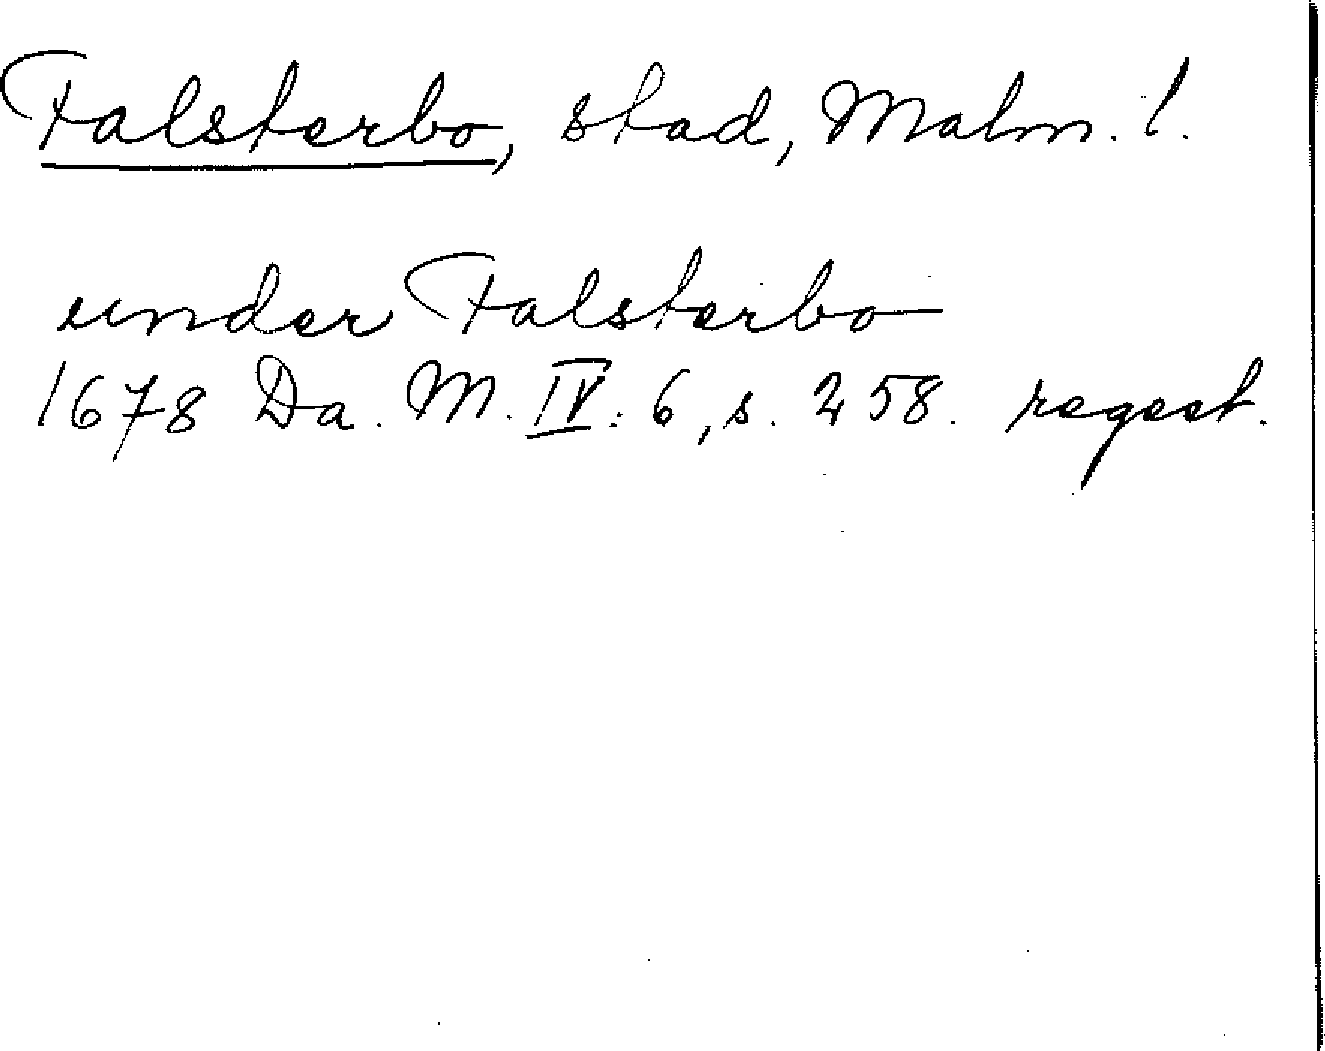 Falsterbo, stad, Malm. l.
under Falsterbo
1678 Da. M. IV: 6, s. 258. regest.